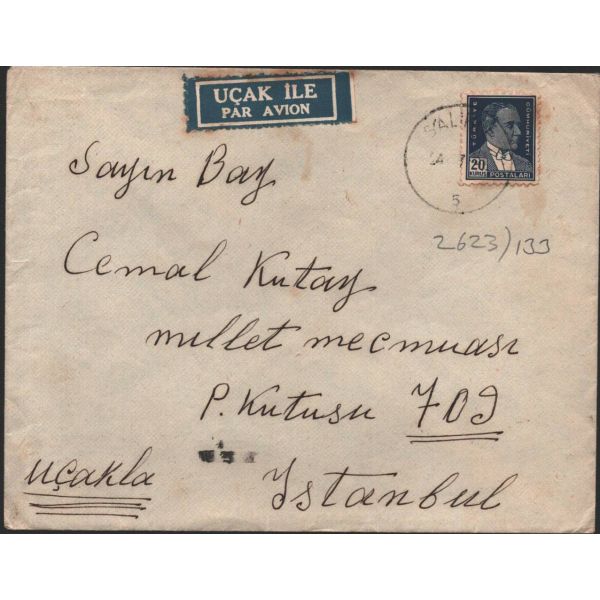 UÇAK İLE
PAR AVION
TÜRKİYE CÜMHURİYETİ
20
POSTALARI
5
2623/133
Sayın Bay
Cemal Kutay
millet mecmuası
P. Kutusu 709
uçakla
İstanbul